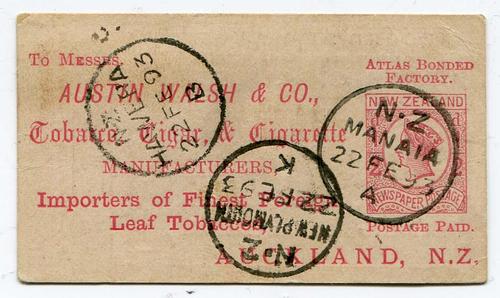 To Messrs.
AUSTIN WALSH & CO.,
Tobacco, Cigar, & Cigarette
MANUFACTURERS,
Importers of Finest Foreign
Leaf Tobaccos,
AUCKLAND, N.Z.
ATLAS BONDED
FACTORY.
NEW ZEALAND
NEWSPAPER POSTAGE
POSTAGE PAID.
HAWERA
N.Z
22 FE 93
N.Z
MANAIA
22 FE 93
A
NEW PLYMOUTH
N.Z
22 FE 93
K